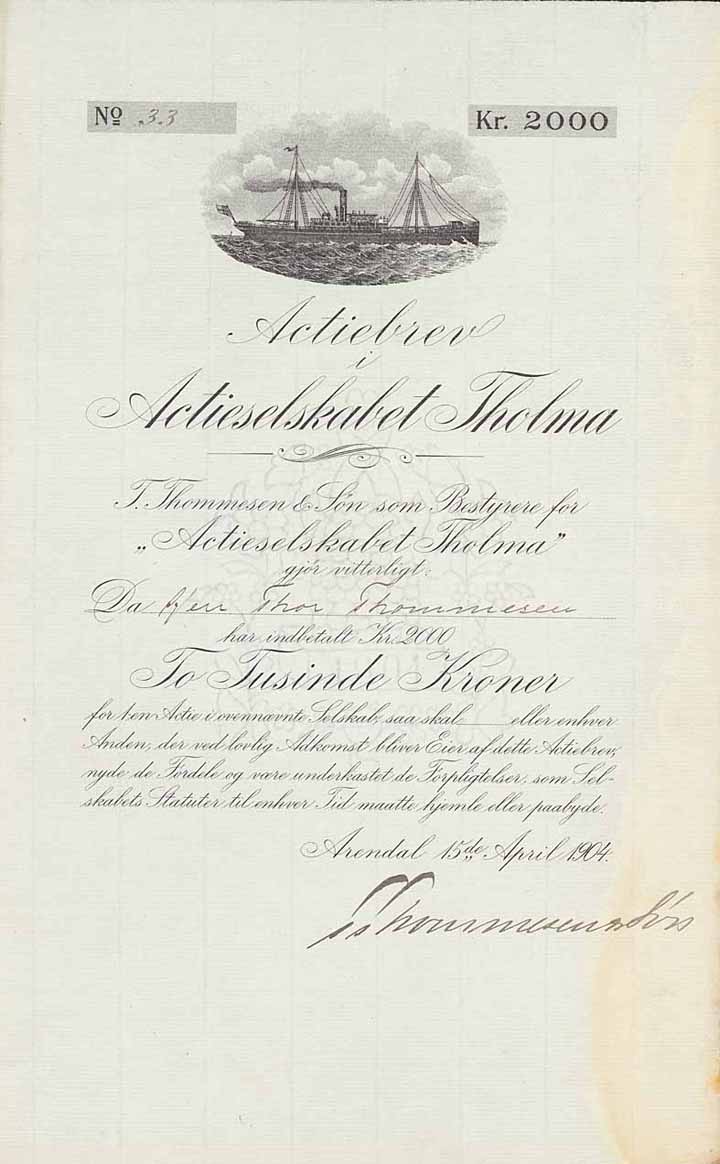 No 33
Kr. 2000
Actiebrev
i
Actieselskabet Tholma
T. Thommesen & Søn som Bestyrere for
„Actieselskabet Tholma”
gjør vitterligt:
Da Herr Thor Thommesen
har indbetalt Kr. 2000
To Tusinde Kroner
for 1 en Actie i ovennævnte Selskab, saa skal eller enhver
Anden, der ved lovlig Adkomst bliver Eier af dette Actiebrev,
nyde de Fordele og være underkastet de Forpligtelser, som Sel-
skabets Statuter til enhver Tid maatte hjemle eller paabyde.
Arendal 15de April 1904.
T Thommesen & Søn